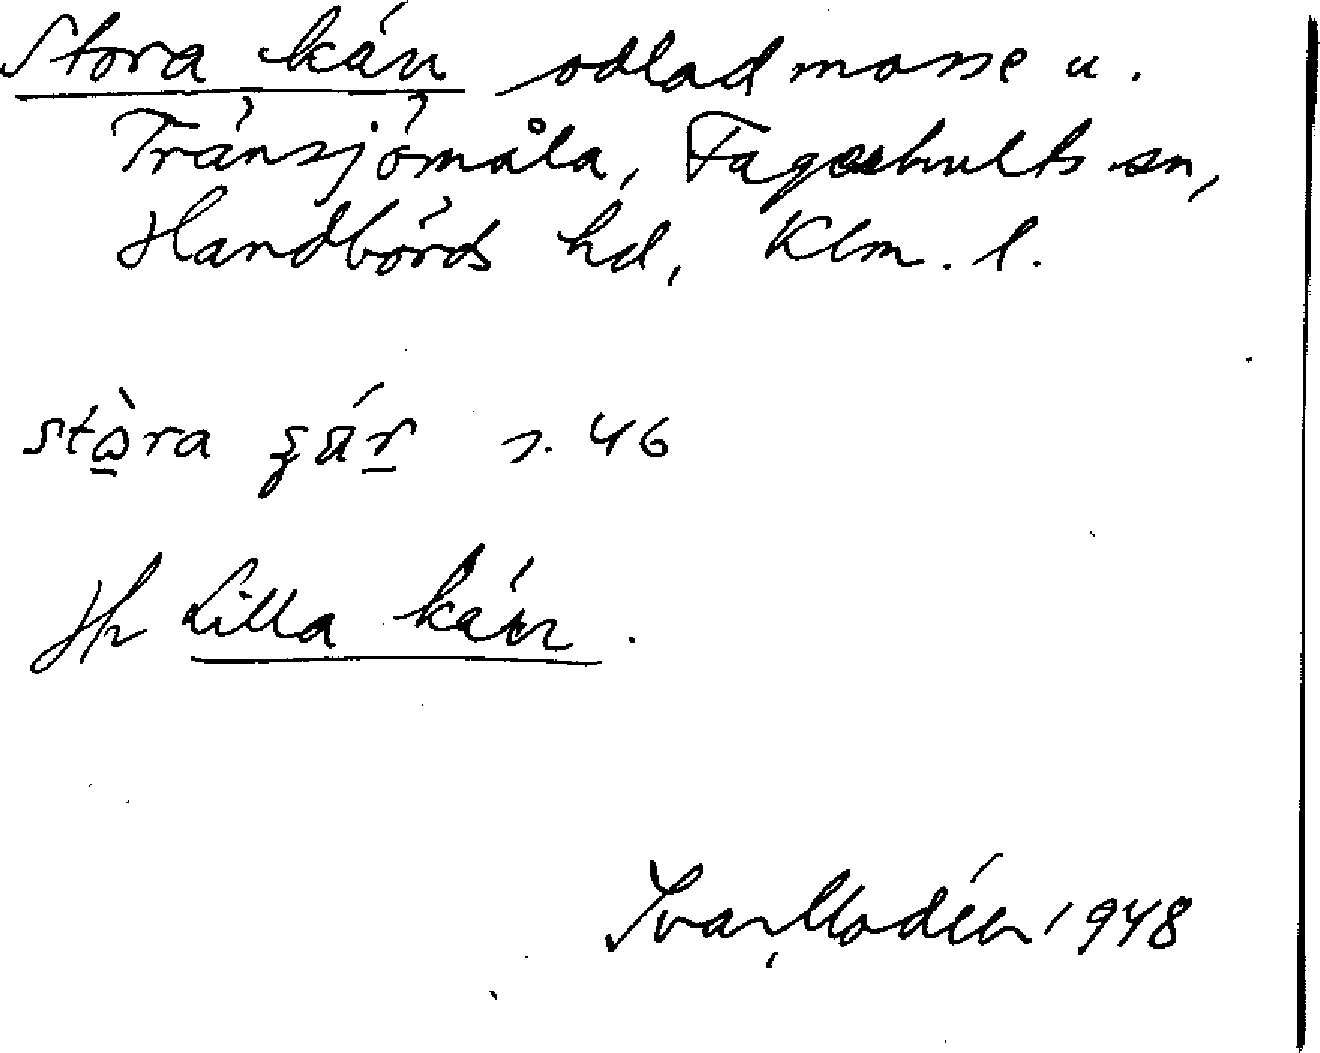 Stora kärr odlad mosse u.
Tränsjömåla, Fagerhults sn,
Handbörds hd, Klm. l.
stὼ̱ra
s. 46
Jfr Lilla kärr.
Ivar Modéer 1948